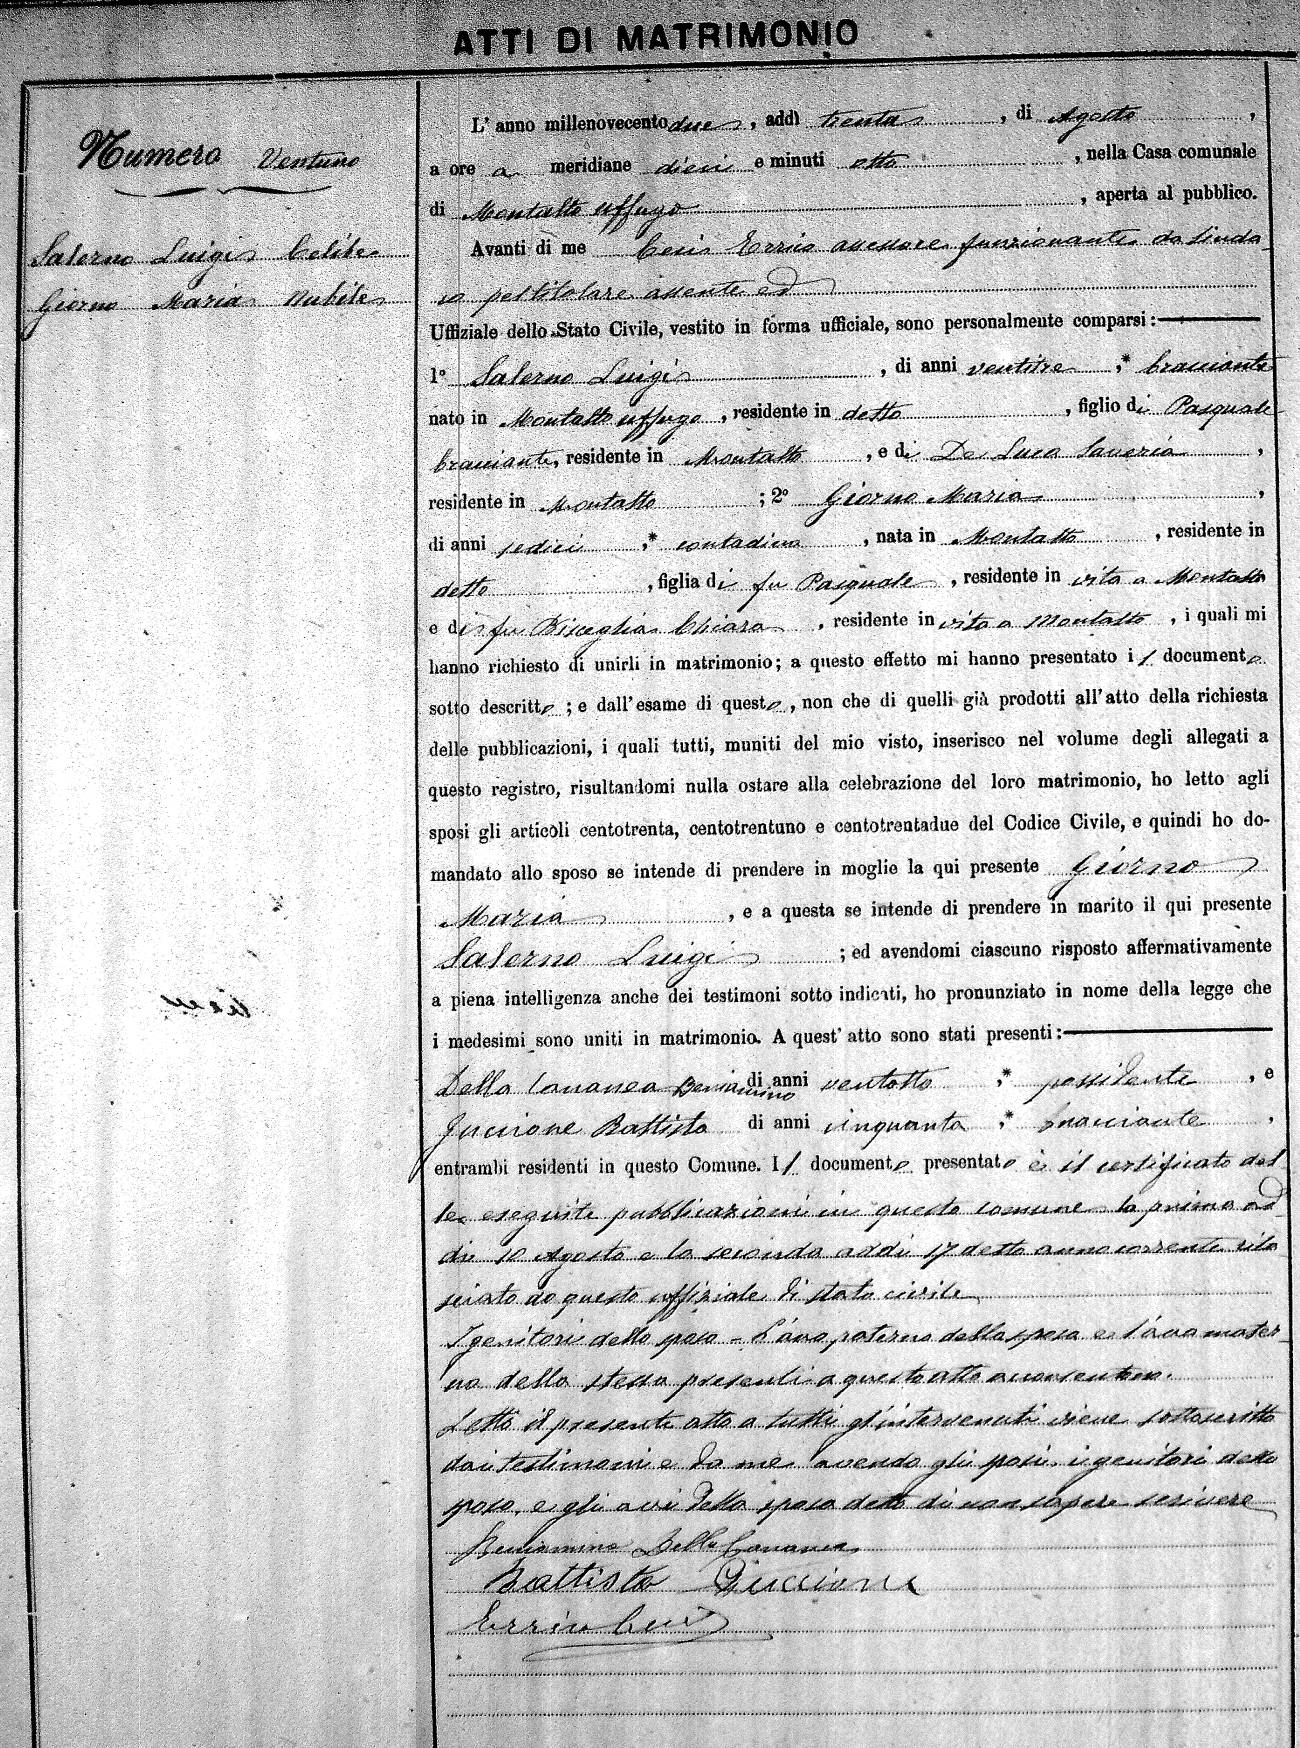 ATTI DI MATRIMONIO
Numero Ventuno
Salerno Luigi Celibe
Giorno Maria Nubile
L'anno millenovecento due, addì trenta, di Agosto,
a ore a meridiane dieci e minuti otto, nella Casa comunale
di Montalto Uffugo, aperta al pubblico.
Avanti di me Errico assessore funzionante da Sinda-
co pel titolare assente ed
Uffiziale dello Stato Civile, vestito in forma ufficiale, sono personalmente comparsi:
1º Salerno Luigi, di anni ventitre, * bracciante
nato in Montalto Uffugo, residente in detto, figlio di Pasquale
bracciante, residente in Montalto, e di De Luca Saveria,
residente in Montalto; 2º Giorno Maria,
di anni sedici, * contadina, nata in Montalto, residente in
detto, figlia di fu Pasquale, residente in vita a Montalto
e di fu Bisceglia Chiara, residente in vita a Montalto, i quali mi
hanno richiesto di unirli in matrimonio; a questo effetto mi hanno presentato il documento
sotto descritto; e dall'esame di questo, non che di quelli già prodotti all'atto della richiesta
delle pubblicazioni, i quali tutti, muniti del mio visto, inserisco nel volume degli allegati a
questo registro, risultandomi nulla ostare alla celebrazione del loro matrimonio, ho letto agli
sposi gli articoli centotrenta, centotrentuno e centotrentadue del Codice Civile, e quindi ho do-
mandato allo sposo se intende di prendere in moglie la qui presente Giorno
Maria, e a questa se intende di prendere in marito il qui presente
Salerno Luigi; ed avendomi ciascuno risposto affermativamente
a piena intelligenza anche dei testimoni sotto indicati, ho pronunziato in nome della legge che
i medesimi sono uniti in matrimonio. A quest'atto sono stati presenti:
Della Cananea Beniamino di anni ventotto, * possidente, e
Guccione Battista di anni cinquanta, * bracciante,
entrambi residenti in questo Comune. Il documento presentato è il certificato del
le eseguite pubblicazioni in questo comune la prima ad
dì 10 Agosto e la seconda addì 17 detto anno corrente rila
sciato da questo uffiziale di stato civile
I genitori dello sposo - L'avo paterno della sposa e l'ava mater-
na della stessa presenti a questo atto acconsentono.
Letto il presente atto a tutti gl'intervenuti viene sottoscritto
dai testimoni e da me avendo gli sposi, i genitori dello
sposo, e gli avi della sposa detto di non sapere scrivere
Beniamino Della Cananea
Battista Guccione
Errico